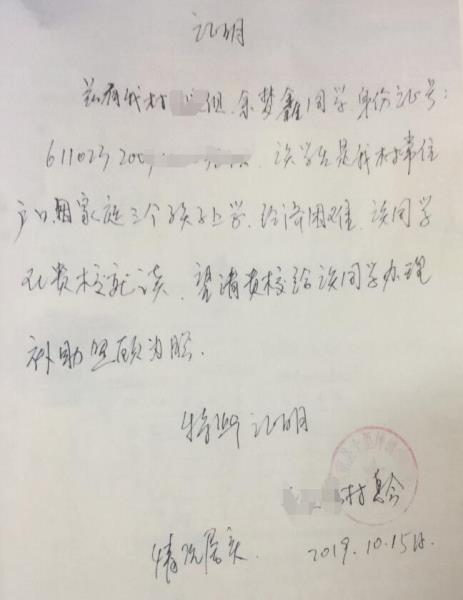 证明
兹有我村 组，余梦鑫同学身份证号：
611023200 ，该学生是我村常住
户口，因家庭三个孩子上学，经济困难，该同学
在贵校就读，望请贵校给该同学办理
补助照顾为盼．
特此证明
村委会
情况属实． 2019.10.15日．